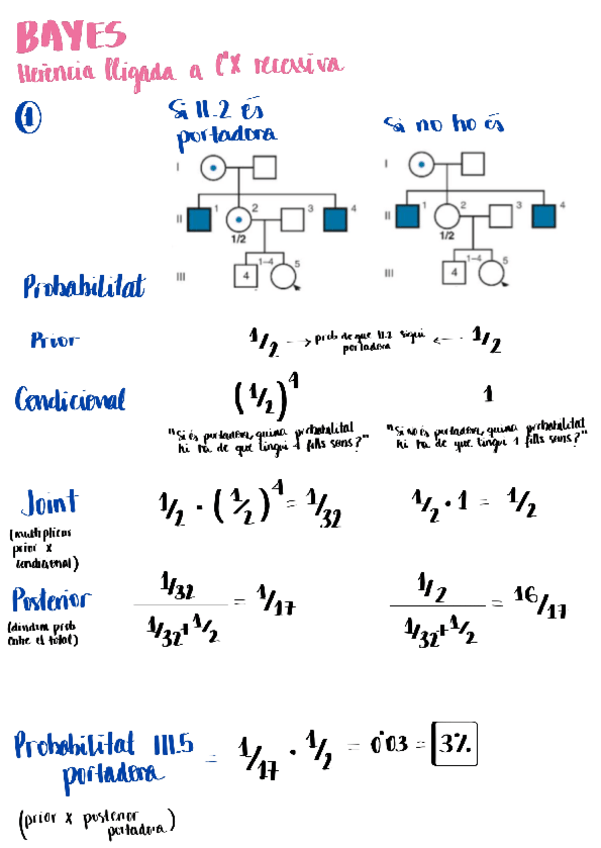 BAYES
Herència lligada a l'X recessiva
① Si II.2 és portadora Si no ho és
I I
1 2 3 4 1 2 3 4
II II
1/2 1/2
1-4 5 1-4 5
III 4 III 4
Probabilitat
Prior 1/2 → prob de que II.2 sigui portadora ← 1/2
Condicional (1/2)^4 1
"Si és portadora, quina probabilitat "Si no és portadora, quina probabilitat
hi ha de que tingui 4 fills sans?" hi ha de que tingui 4 fills sans?"
Joint 1/2 · (1/2)^4 = 1/32 1/2 · 1 = 1/2
(multiplicar
prior x
condicional)
Posterior 1/32 / 1/32 + 1/2 = 1/17 1/2 / 1/32 + 1/2 = 16/17
(dividim prob
entre el total)
Probabilitat III.5 portadora = 1/17 · 1/2 = 0'03 = 3%
(prior x posterior
portadora)